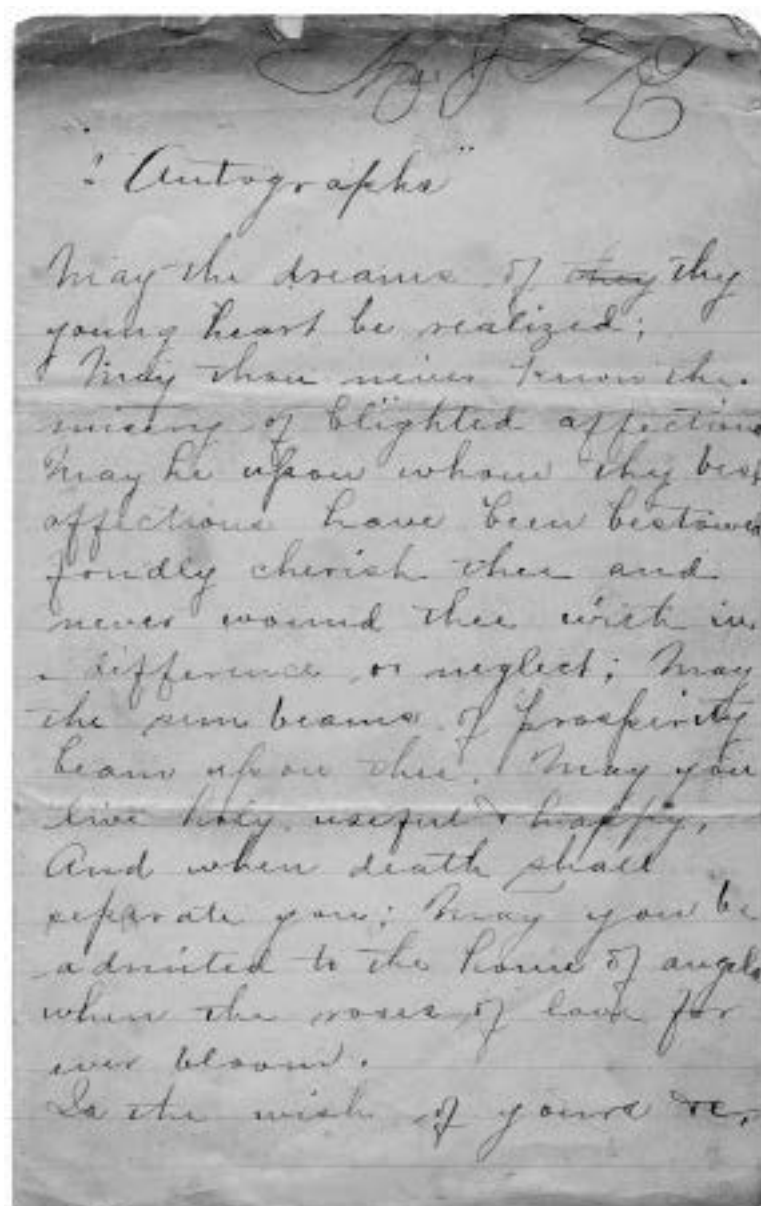 "Autographs"
May the dreams of they thy
young heart be realized;
May thou never know the
misery of blighted affections
May he upon whom thy best
affections have been bestowed
fondly cherish thee and
never wound thee with in
difference or neglect; May
the sun beams of prosperity
beam upon thee. May you
live holy, useful & happy,
And when death shall
seperate you; May you be
admited to the home of angels
when the roses of love for
ever bloom.
Is the wish of yours &c.